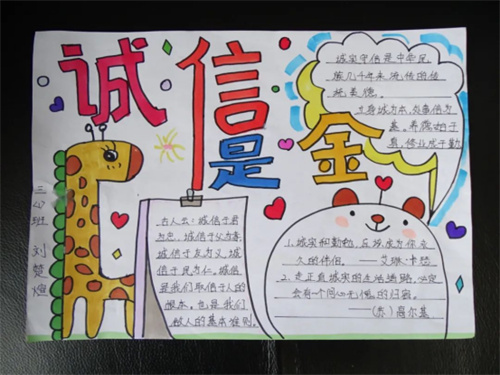 诚信是金
诚实守信是中华民
族几千年来流传的传
统美德。
立身诚为本,处事信为
基。养德始于
真,修业成于勤
三(2)班 刘楚
古人云:诚信于君
为忠,诚信于父为孝,
诚信于友为义,诚
信于民为仁,诚信
是我们取信于人的
根本。也是我们
做人的基本准则。
1.诚实和勤勉,应该成为你永
久的伴侣。
2.走正直诚实的生活道路,必定
会有一个问心无愧的归宿。
——(苏)高尔基